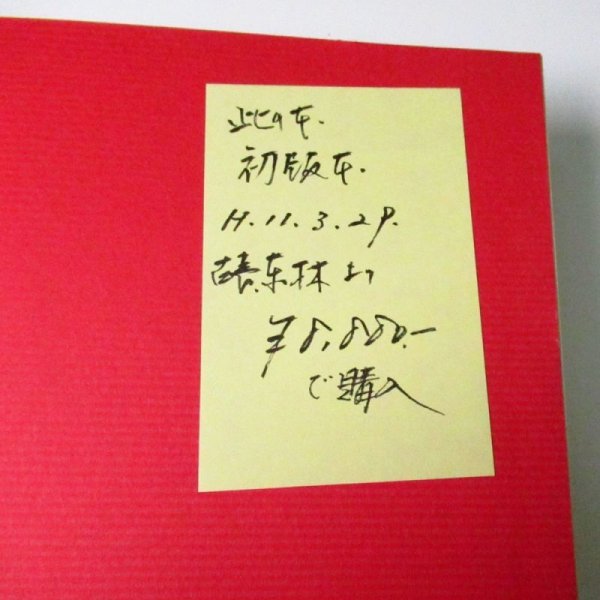 此の本.
初版本.
H.11.3.29.
東林より
¥8,880.-
で購入